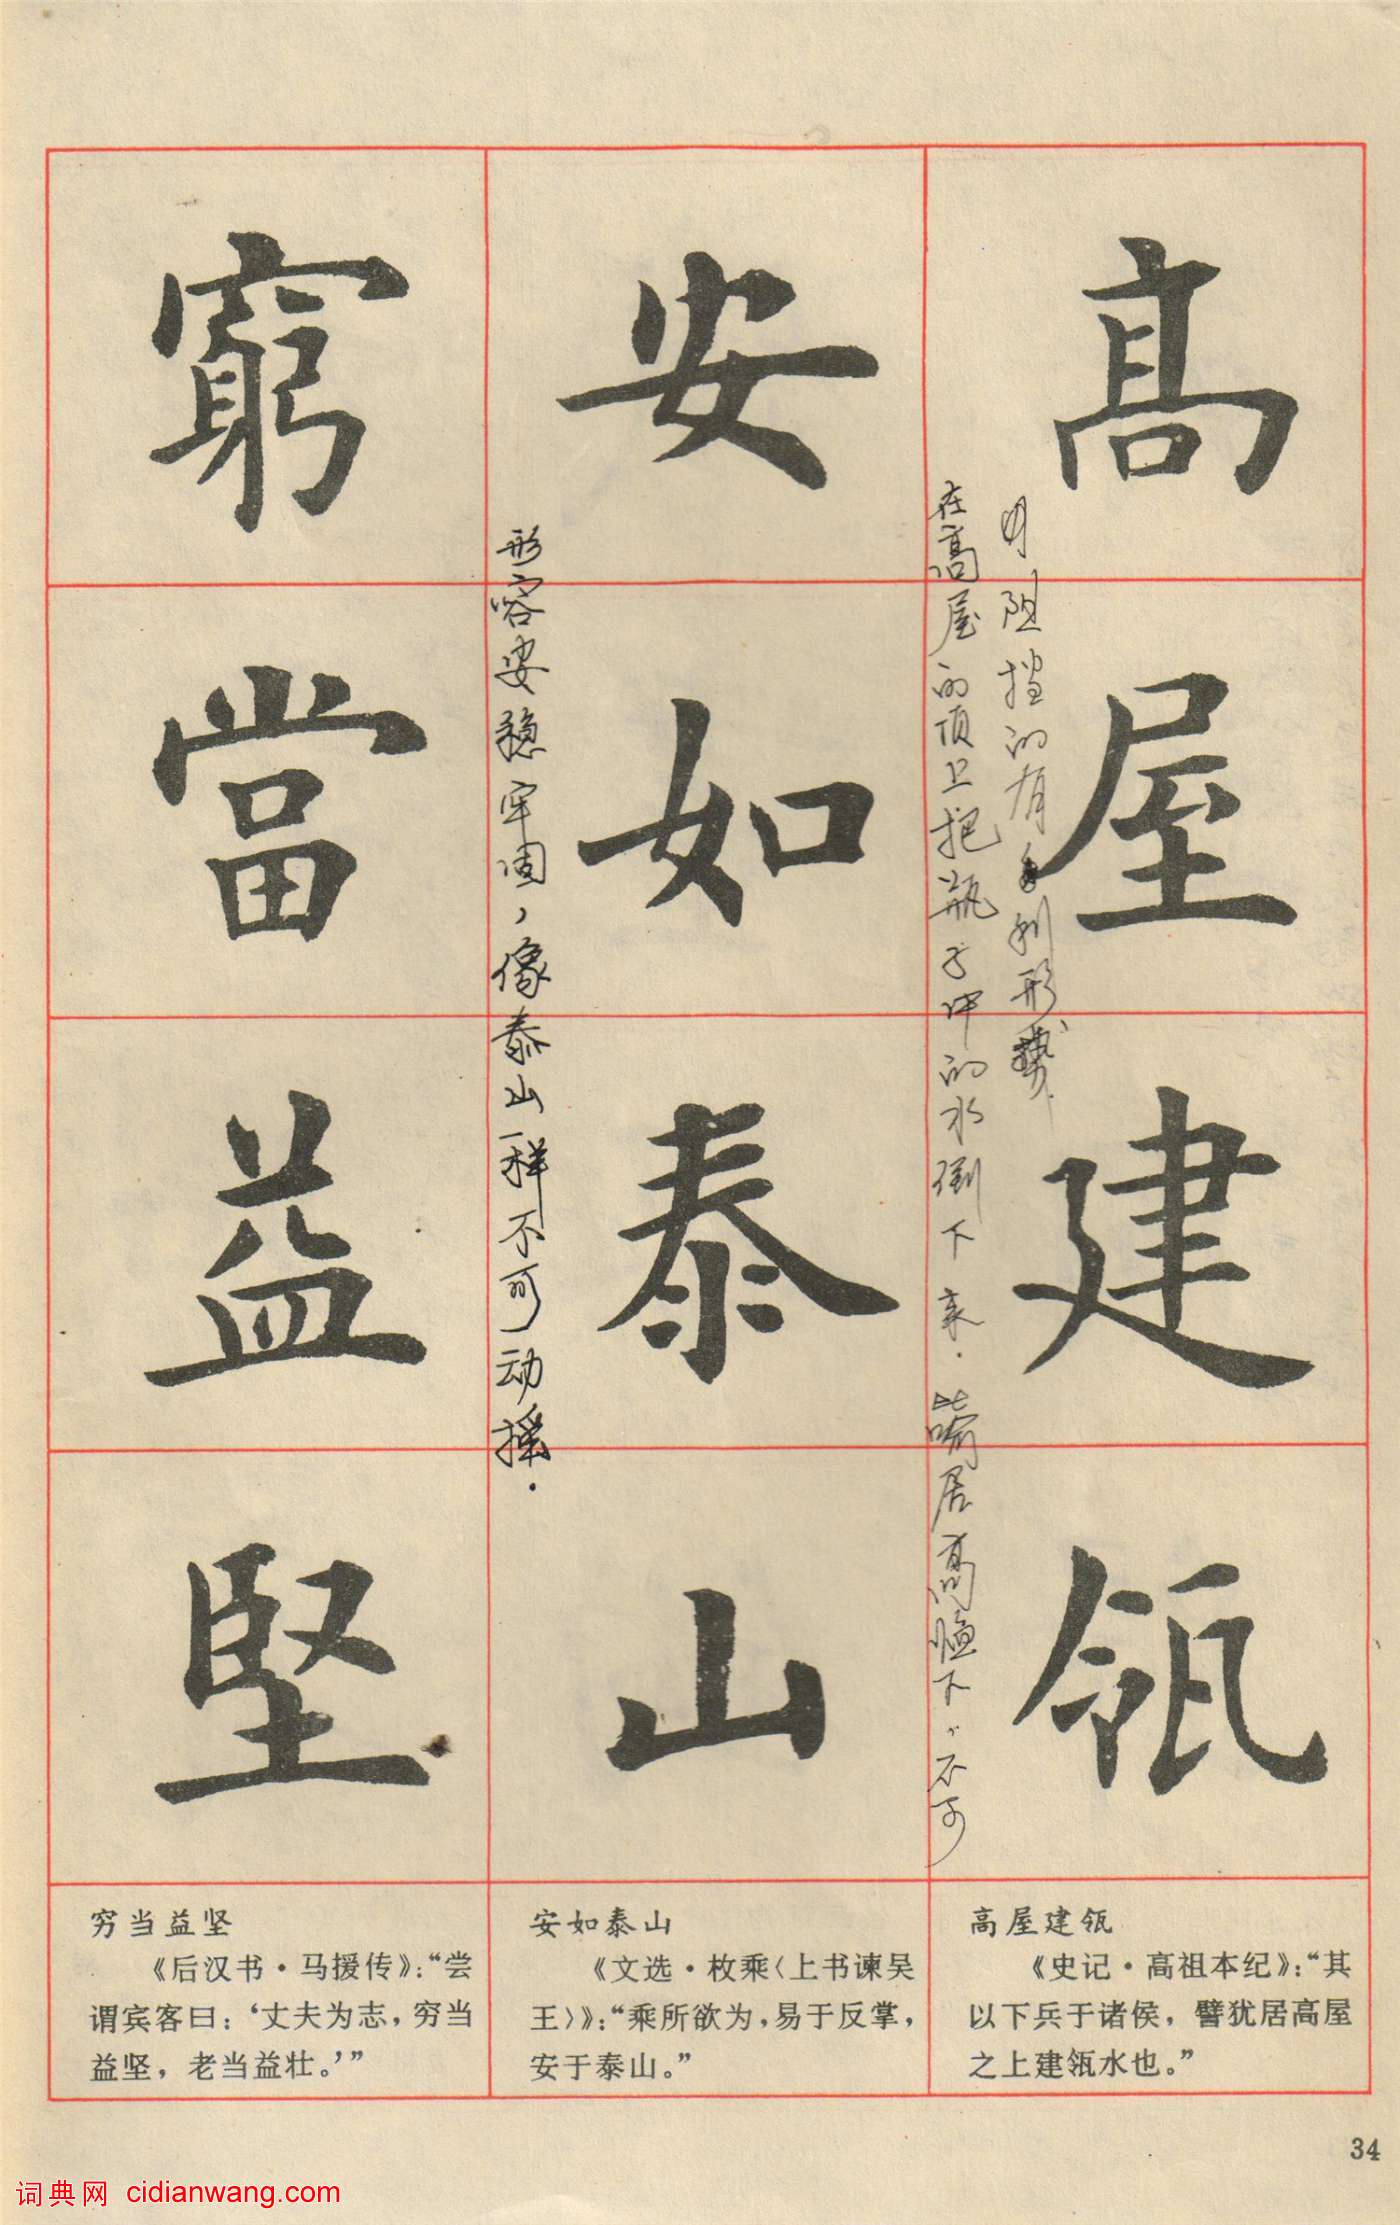 高屋建瓴
安如泰山
窮當益堅
在高屋的顶上把瓶子中的水倒下来．喻居高临下，不可
阻挡的有利形势．
形容安稳牢固，像泰山一样不可动摇．
高屋建瓴
《史记·高祖本纪》：“其
以下兵于诸侯，譬犹居高屋
之上建瓴水也。”
安如泰山
《文选·枚乘〈上书谏吴
王〉》：“乘所欲为，易于反掌，
安于泰山。”
穷当益坚
《后汉书·马援传》：“尝
谓宾客曰：‘丈夫为志，穷当
益坚，老当益壮。’”
34
词典网 cidianwang.com